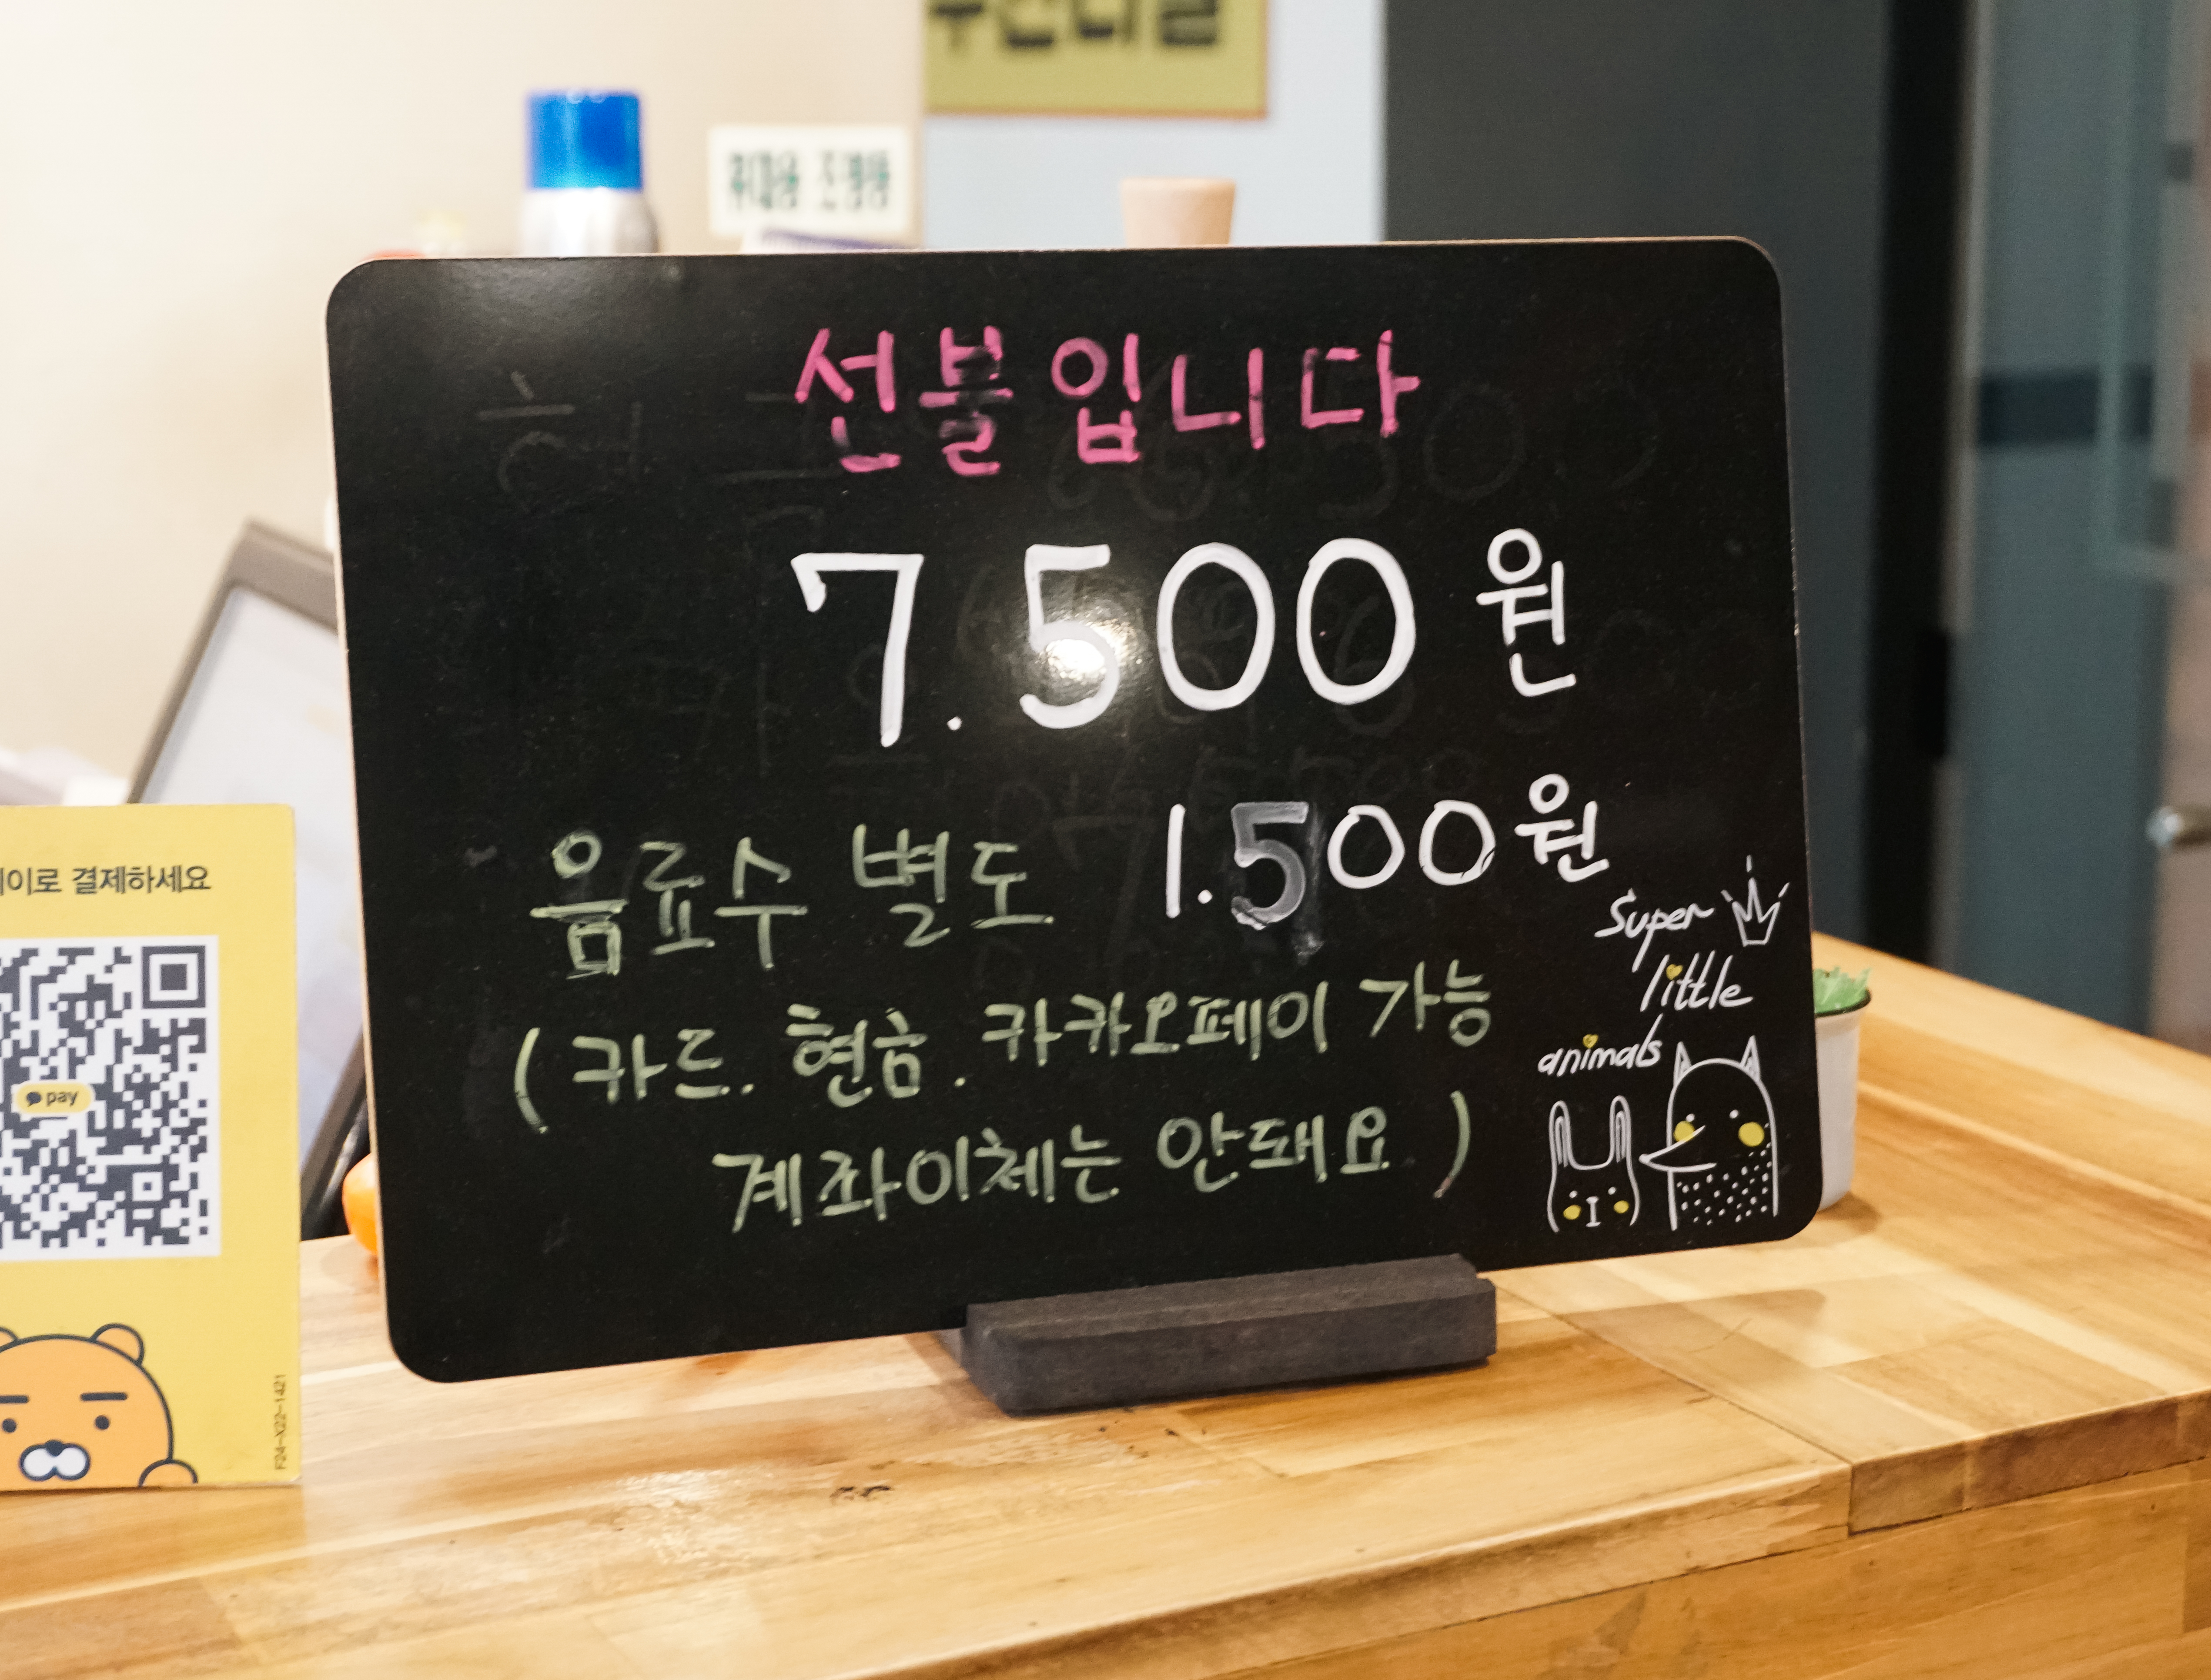 선불입니다
7.500원
음료수 별도 1.500원
(카드. 현금. 카카오페이 가능
계좌이체는 안돼요)
Super
little
animals
이로 결제하세요
pay
F24-X22-1421